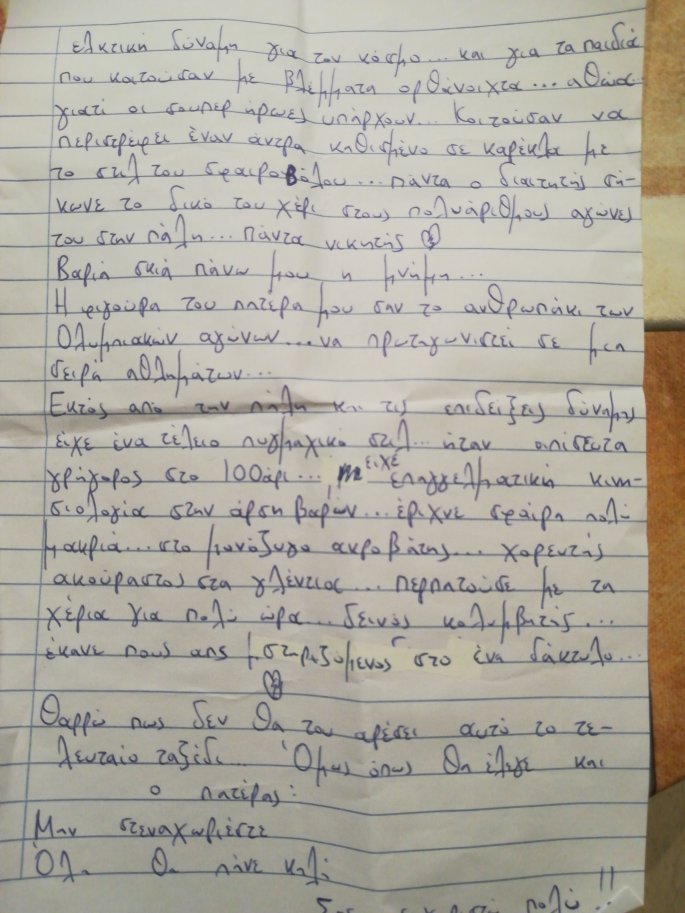 ελκτική δύναμη για τον κόσμο... και για τα παιδιά
που κοιτούσαν με βλέμματα ορθάνοιχτα... αθώα
γιατί οι σούπερ ήρωες υπάρχουν... Κοιτούσαν να
περιστρέφει έναν άντρα καθισμένο σε καρέκλα με
το στιλ του σφαιροβόλου... πάντα ο διαιτητής σή-
κωνε το δικό του χέρι στους πολυάριθμους αγώνες
του στην πάλη... Πάντα νικητής
Βαριά σκιά πάνω μου η μνήμη...
Η φιγούρα του πατέρα μου σαν το ανθρωπάκι των
Ολυμπιακών αγώνων... να πρωταγωνιστεί σε μια
σειρά αθλημάτων...
Εκτός από την πάλη και τις επιδείξεις δύναμης
είχε ένα τέλειο πυγμαχικό στιλ... ήταν απίστευτα
γρήγορος στο 100άρι... είχε επαγγελματική κινη-
σιολογία στην άρση βαρών... έριχνε σφαίρα πολύ
μακριά... στο μονόζυγο ακροβάτης... χορευτής
ακούραστος στα γλέντια... περπατούσε με τα
χέρια για πολύ ώρα... δεινός κολυμβητής...
έκανε πους απς στηριζόμενος στο ένα δάκτυλο...
Θαρρώ πως δεν θα του αρέσει αυτό το τε-
λευταίο ταξίδι... Όμως όπως θα έλεγε και
ο πατέρας:
Μην στεναχωριέστε
Όλα θα πάνε καλά
πολύ !!